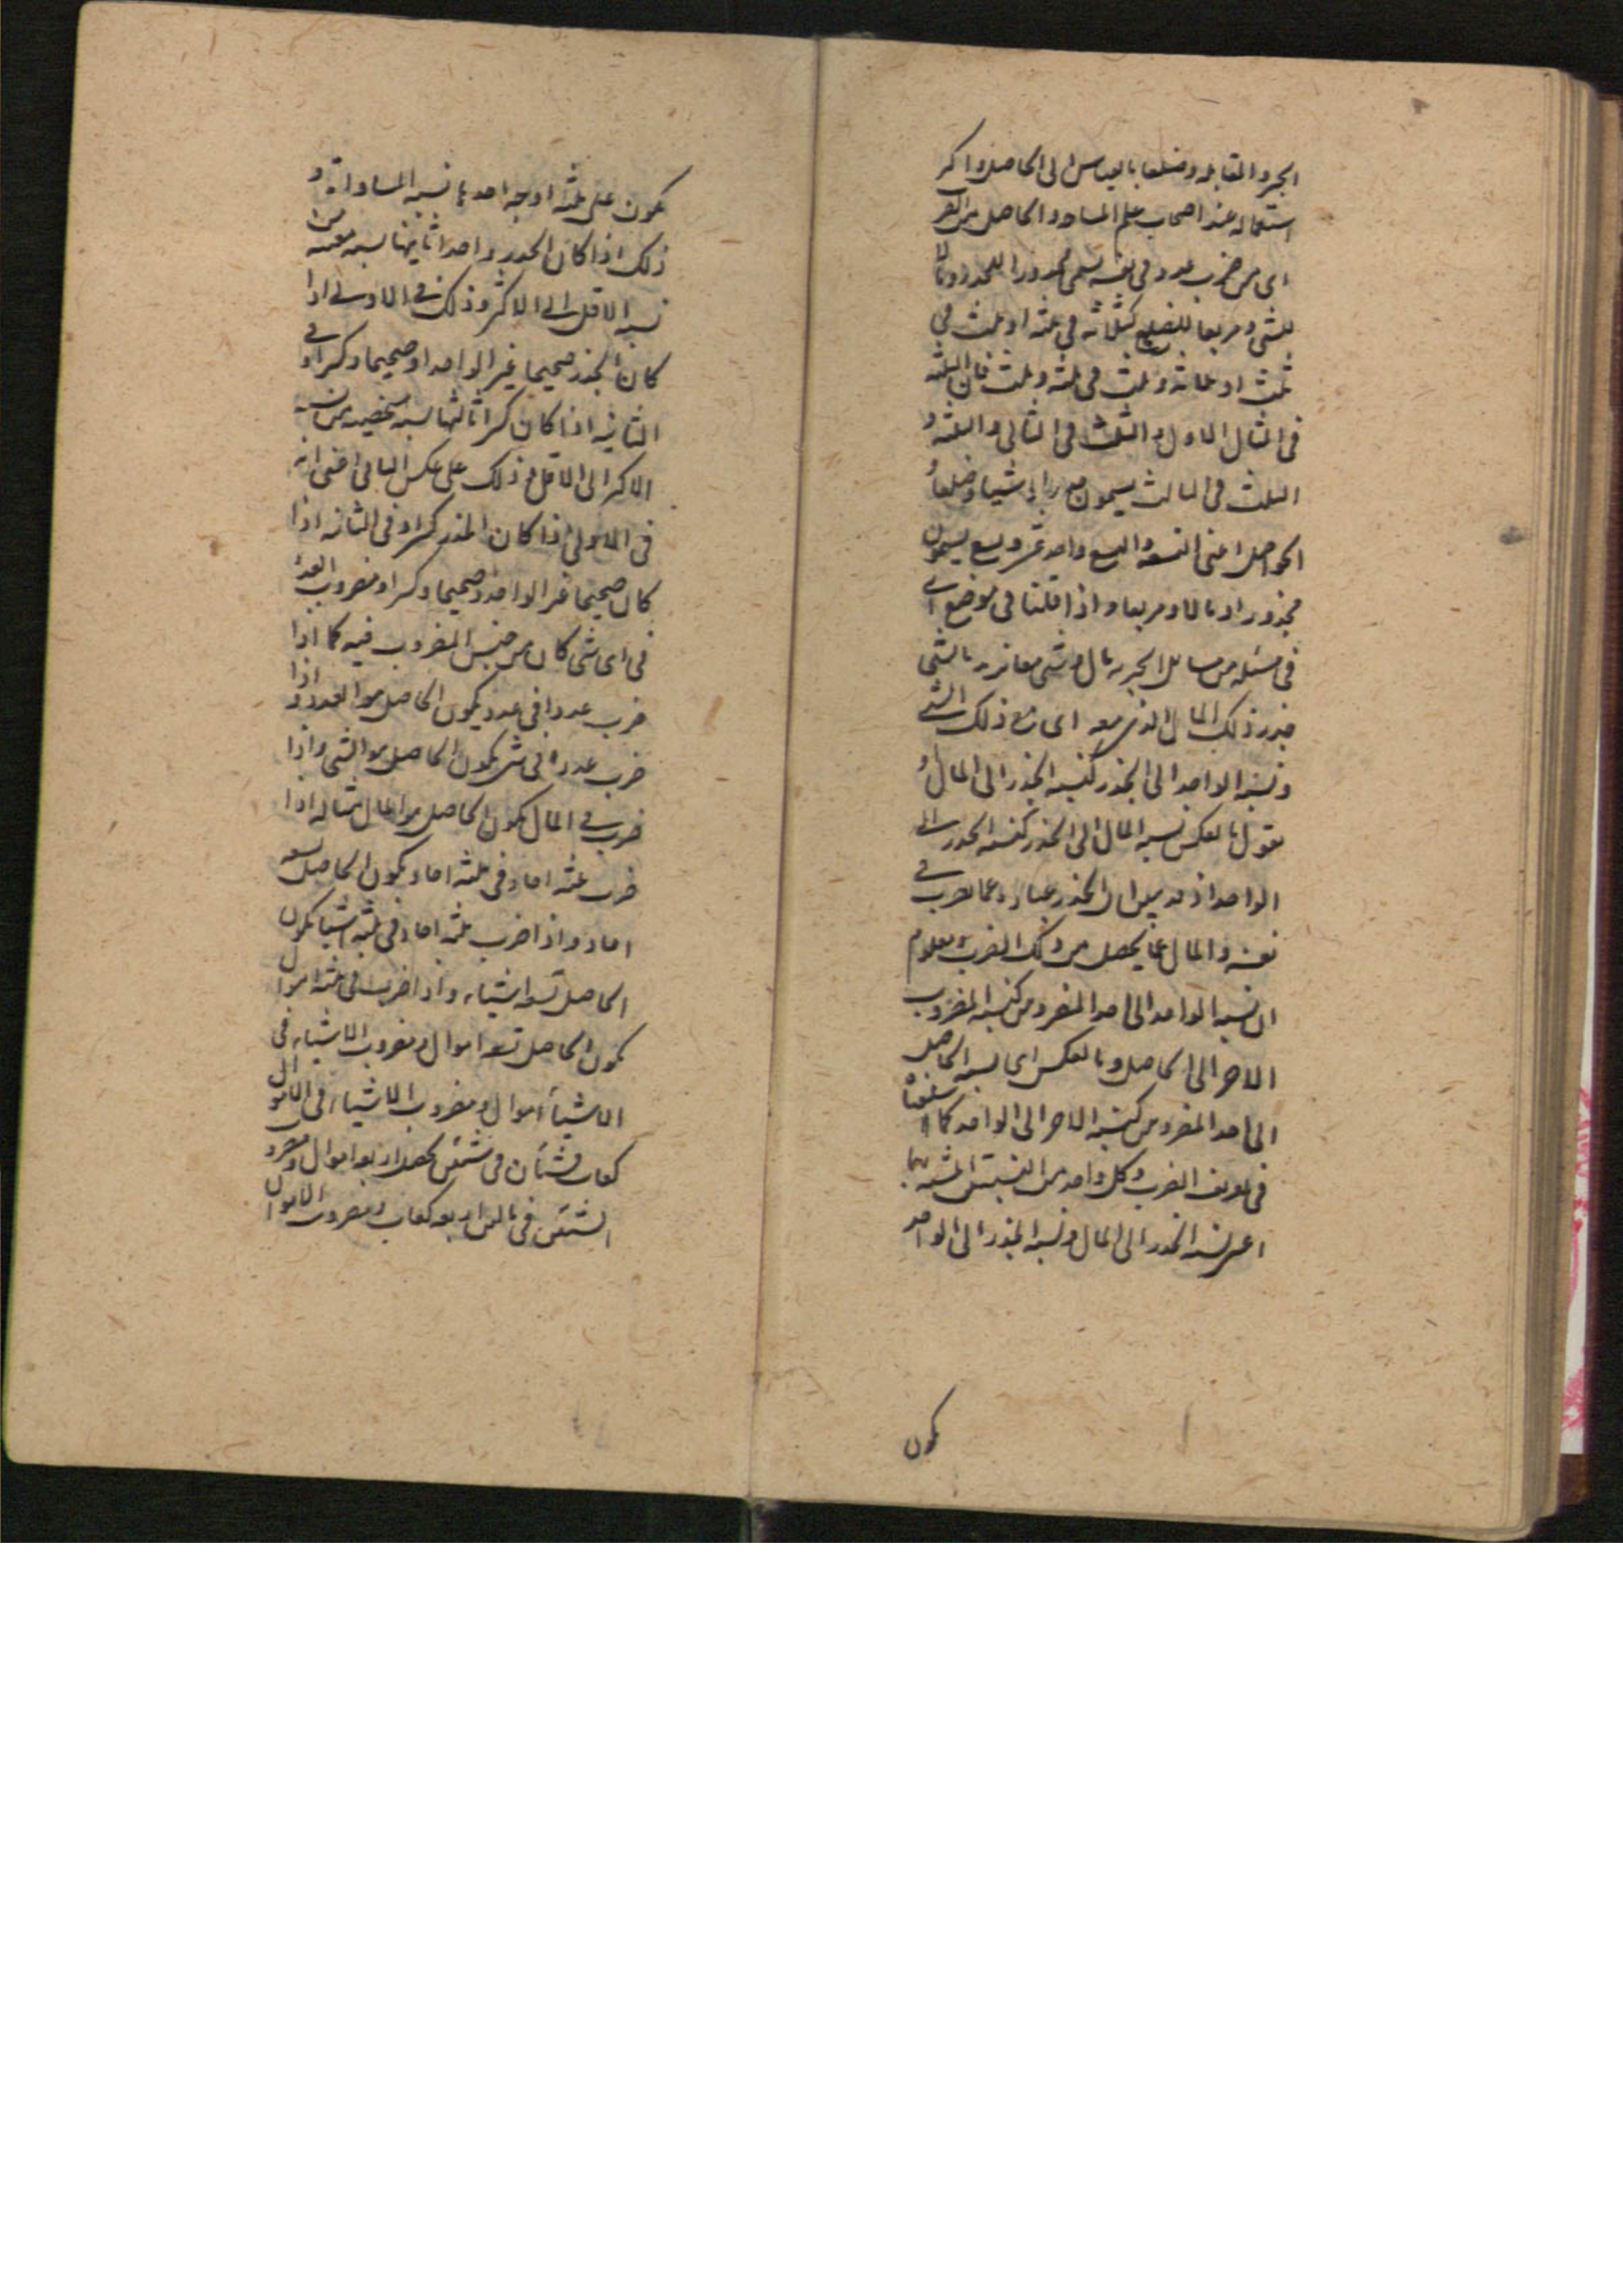 الجبر والمقابلة وضلعا بالقياس الى الحاصل واكثر
استعماله عند اصحاب علم المساحة والحاصل من الضر
اى من ضرب عدد فى نفسه يسمى مجذورا للجذر ومالا
للشى ومربعا للضلع كثلثه فى ثلثه او ثلث فى
ثلث او ثلثه وثلث فى ثلثه وثلث فان الثلثه
فى المثال الاول والثلث فى الثانى والثلثه و
الثلث فى الثالث يسمون جذرا وشيئا وضلعا و
الحواصل اعنى التسعه والتسع واحد عشر وتسع يسمون
مجذورا ومالا ومربعا واذا قلنا فى موضع اى
فى مسئله من مسائل الجبر مال وشى معا نريد بالشى
جذر ذلك المال الذى معه اى مع ذلك الشى
ونسبه الواحد الى الجذر كنسبه الجذر الى المال و
نقول بالعكس نسبه المال الى الجذر كنسبه الجذر الى
الواحد اذ الجذر عباره عما ضرب فى
نفسه والمال عما يحصل من ذلك الضرب ومعلوم
ان نسبه الواحد الى احد المضروبين كنسبه المضروب
الاخر الى الحاصل وبالعكس اى نسبه الحاصل
الى احد المضروبين كنسبه الاخر الى الواحد كما
فى تعريف الضرب وكل واحد من النسبتين
اعنى نسبه الجذر الى المال ونسبه الجذر الى الواحد
يكون
يكون على ثلثه اوجه احدها نسبه المساواة و
ذلك اذا كان الجذر واحدا ثانيها نسبه من
نسبه الاقل الى الاكثر وذلك فى الاولى اذا
كان الجذر صحيحا غير الواحد او صحيحا وكسرا وفى
الثانيه اذا كان كسرا ثالثها نسبه من نسبه
الاكثر الى الاقل وذلك على عكس الثانى اعنى انه
فى الاولى اذا كان الجذر كسرا وفى الثانيه اذا
كان صحيحا غير الواحد وصحيحا وكسرا ومضروب العدد
فى اى شى كان من جنس المضروب فيه كما اذا
ضرب عددا فى عدد يكون الحاصل هو العدد واذا
ضرب عددا فى شى يكون الحاصل هو الشى واذا
ضرب فى المال يكون الحاصل هو المال مثاله اذا
ضرب ثلثه احاد فى ثلثه احاد يكون الحاصل تسعه
احاد واذا ضرب ثلثه احاد فى ثلثه اشيا يكون
الحاصل تسعه اشياء واذا ضرب فى ثلثه اموال
يكون الحاصل تسعه اموال ومضروب الاشياء فى
الاشياء اموال ومضروب الاشياء فى الاموال
كعاب فشيئان فى شيئين يحصل اربعه اموال ومضروب
الشيئين فى مالين اربعه كعاب ومضروب الاموال